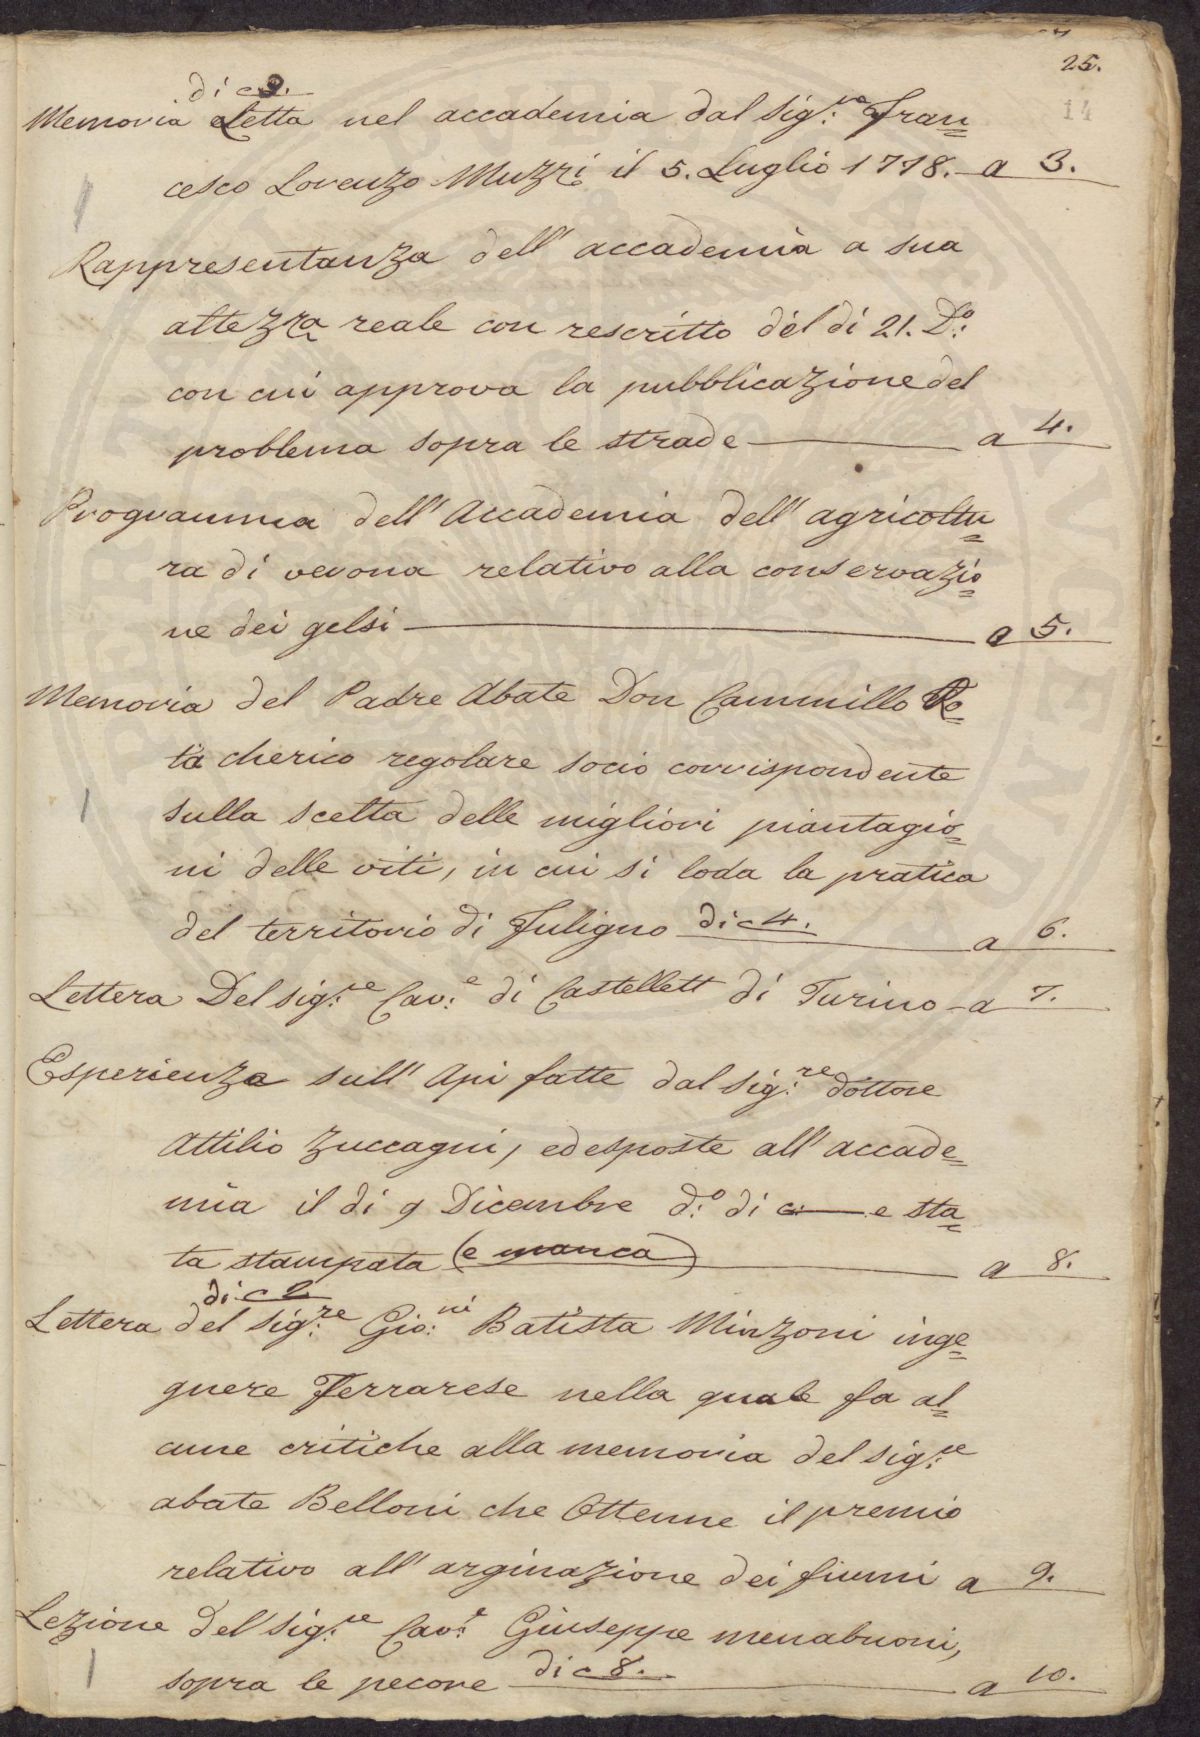 25.
14
di c 9.
Memoria Letta nel accademia dal Sig:re Fran=
cesco Lorenzo Muzzi il 5. Luglio 1778. a 3.
Rappresentanza dell' accademia a sua
altezza reale con rescritto del di 21. D:o
con cui approva la pubblicazione del
problema sopra le strade a 4.
Programma dell' Accademia dell' agricoltu=
ra di verona relativo alla conservazio=
ne dei gelsi a 5.
Memoria del Padre Abate Don Cammillo
ta cherico regolare socio corrispondente
sulla scelta delle migliori piantagio=
ni delle viti, in cui si loda la pratica
del territorio di Fuligno di c 4. a 6.
Lettera Del Sig:re Cav:e di Castellett di Turino a 7.
Esperienza sull' Api fatte dal Sig:re dottore
Attilio Zuccagni, ed esposte all' accade=
mia il di 9 Dicembre d:o di c: e sta=
ta stampata (e manca) a 8.
di c 2
Lettera del Sig:re Gio:ni Batista Minzoni inge=
gnere Ferrarese nella quale fa al=
cune critiche alla memoria del Sig:re
abate Belloni che Ottenne il premio
relativo all' arginazione dei fiumi a 9.
Lezione del Sig:re Cav:e Giuseppe menabuoni,
sopra le pecore di c 8. a 10.